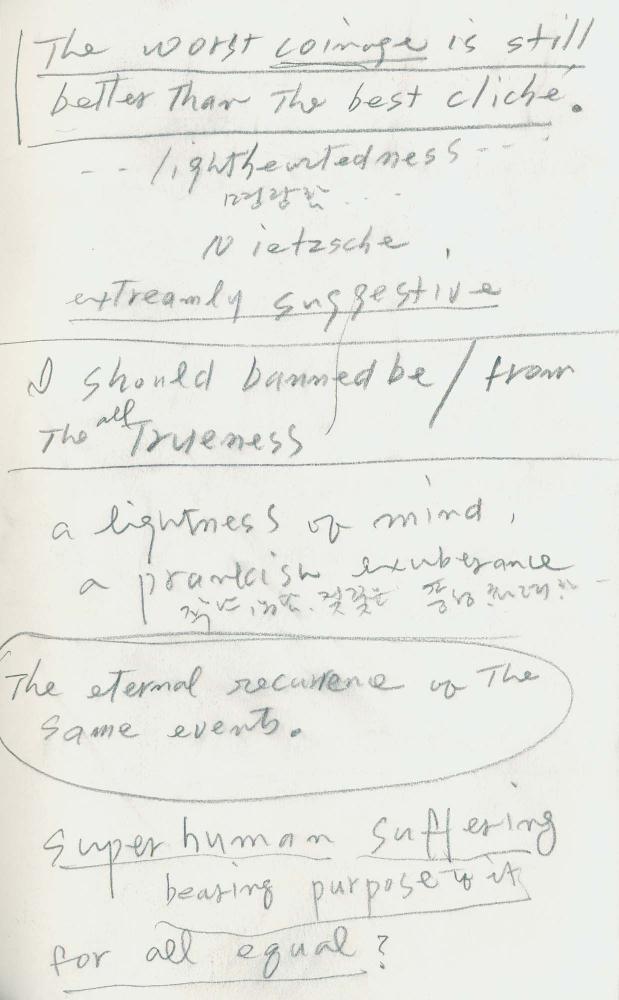 The worst coinage is still
better than The best cliché.
-- lightheartedness ---
명랑한 ...
Nietzsche,
extreamly suggestive
I should banned be / from
The all Trueness
a lightness of mind,
a prankish exuberance
짖궂은
The eternal recurrence of The
same events.
super human suffering
bearing purpose to it
for all equal?